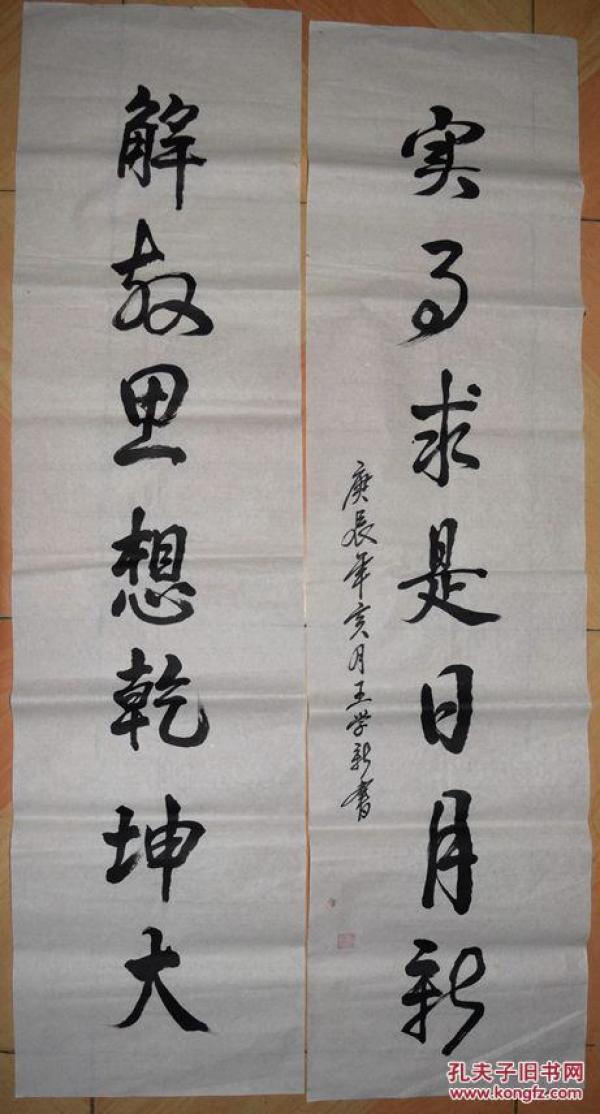 解放思想乾坤大
实事求是日月新
庚辰年亥月王学新書
孔夫子旧书网
www.kongfz.com